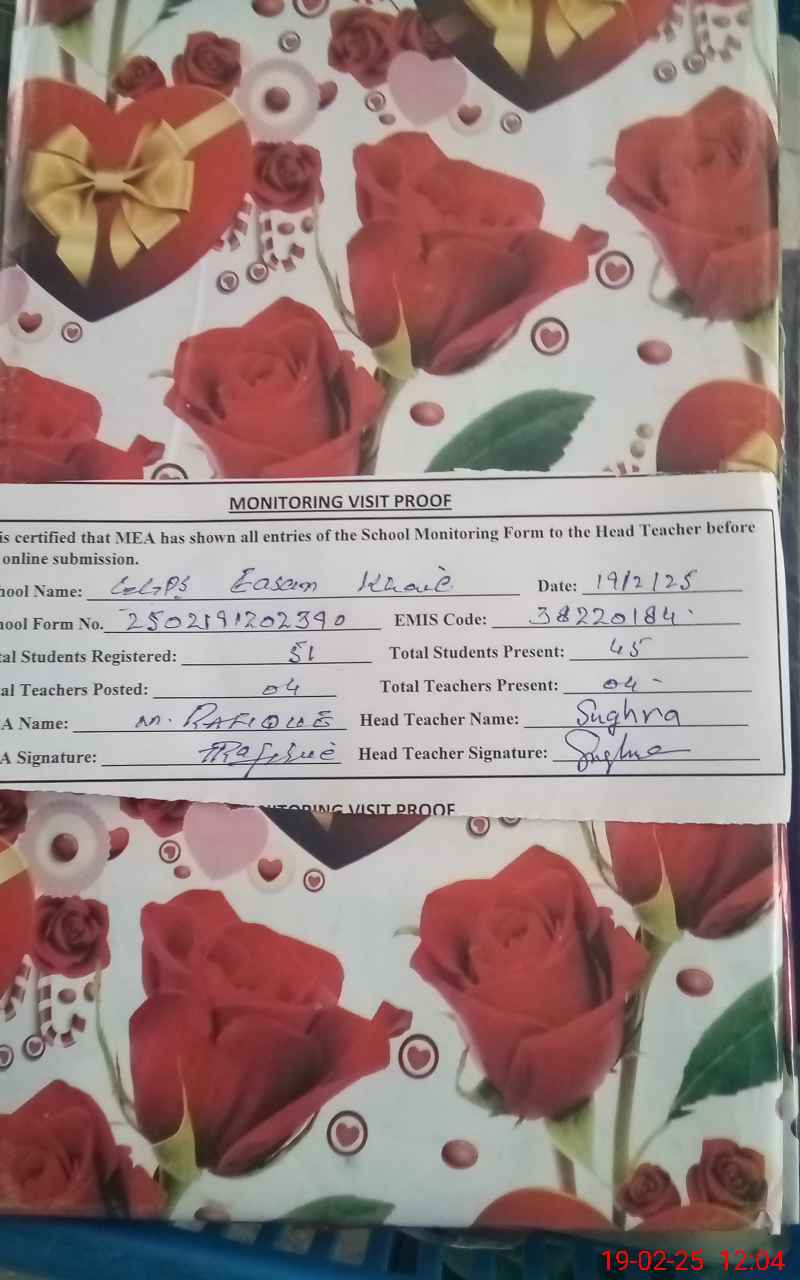 MONITORING VISIT PROOF
is certified that MEA has shown all entries of the School Monitoring Form to the Head Teacher before
online submission.
hool Name: GGPS Easam Khail Date: 19/2/25
hool Form No. 2502191202390 EMIS Code: 38220184
tal Students Registered: 51 Total Students Present: 45
al Teachers Posted: 04 Total Teachers Present: 04
A Name: M. RAFIQUE Head Teacher Name: Sughra
A Signature: MRafique Head Teacher Signature: Sughra
NITORING VISIT PROOF
19-02-25 12:04